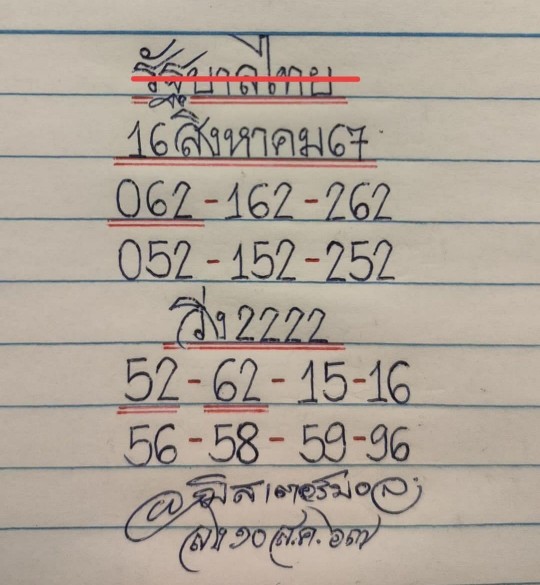 รัฐบาลไทย
16สิงหาคม67
062-162-262
052-152-252
วิ่ง2222
52-62-15-16
56-58-59-96
ลง๑๐ส.ค.๖๗